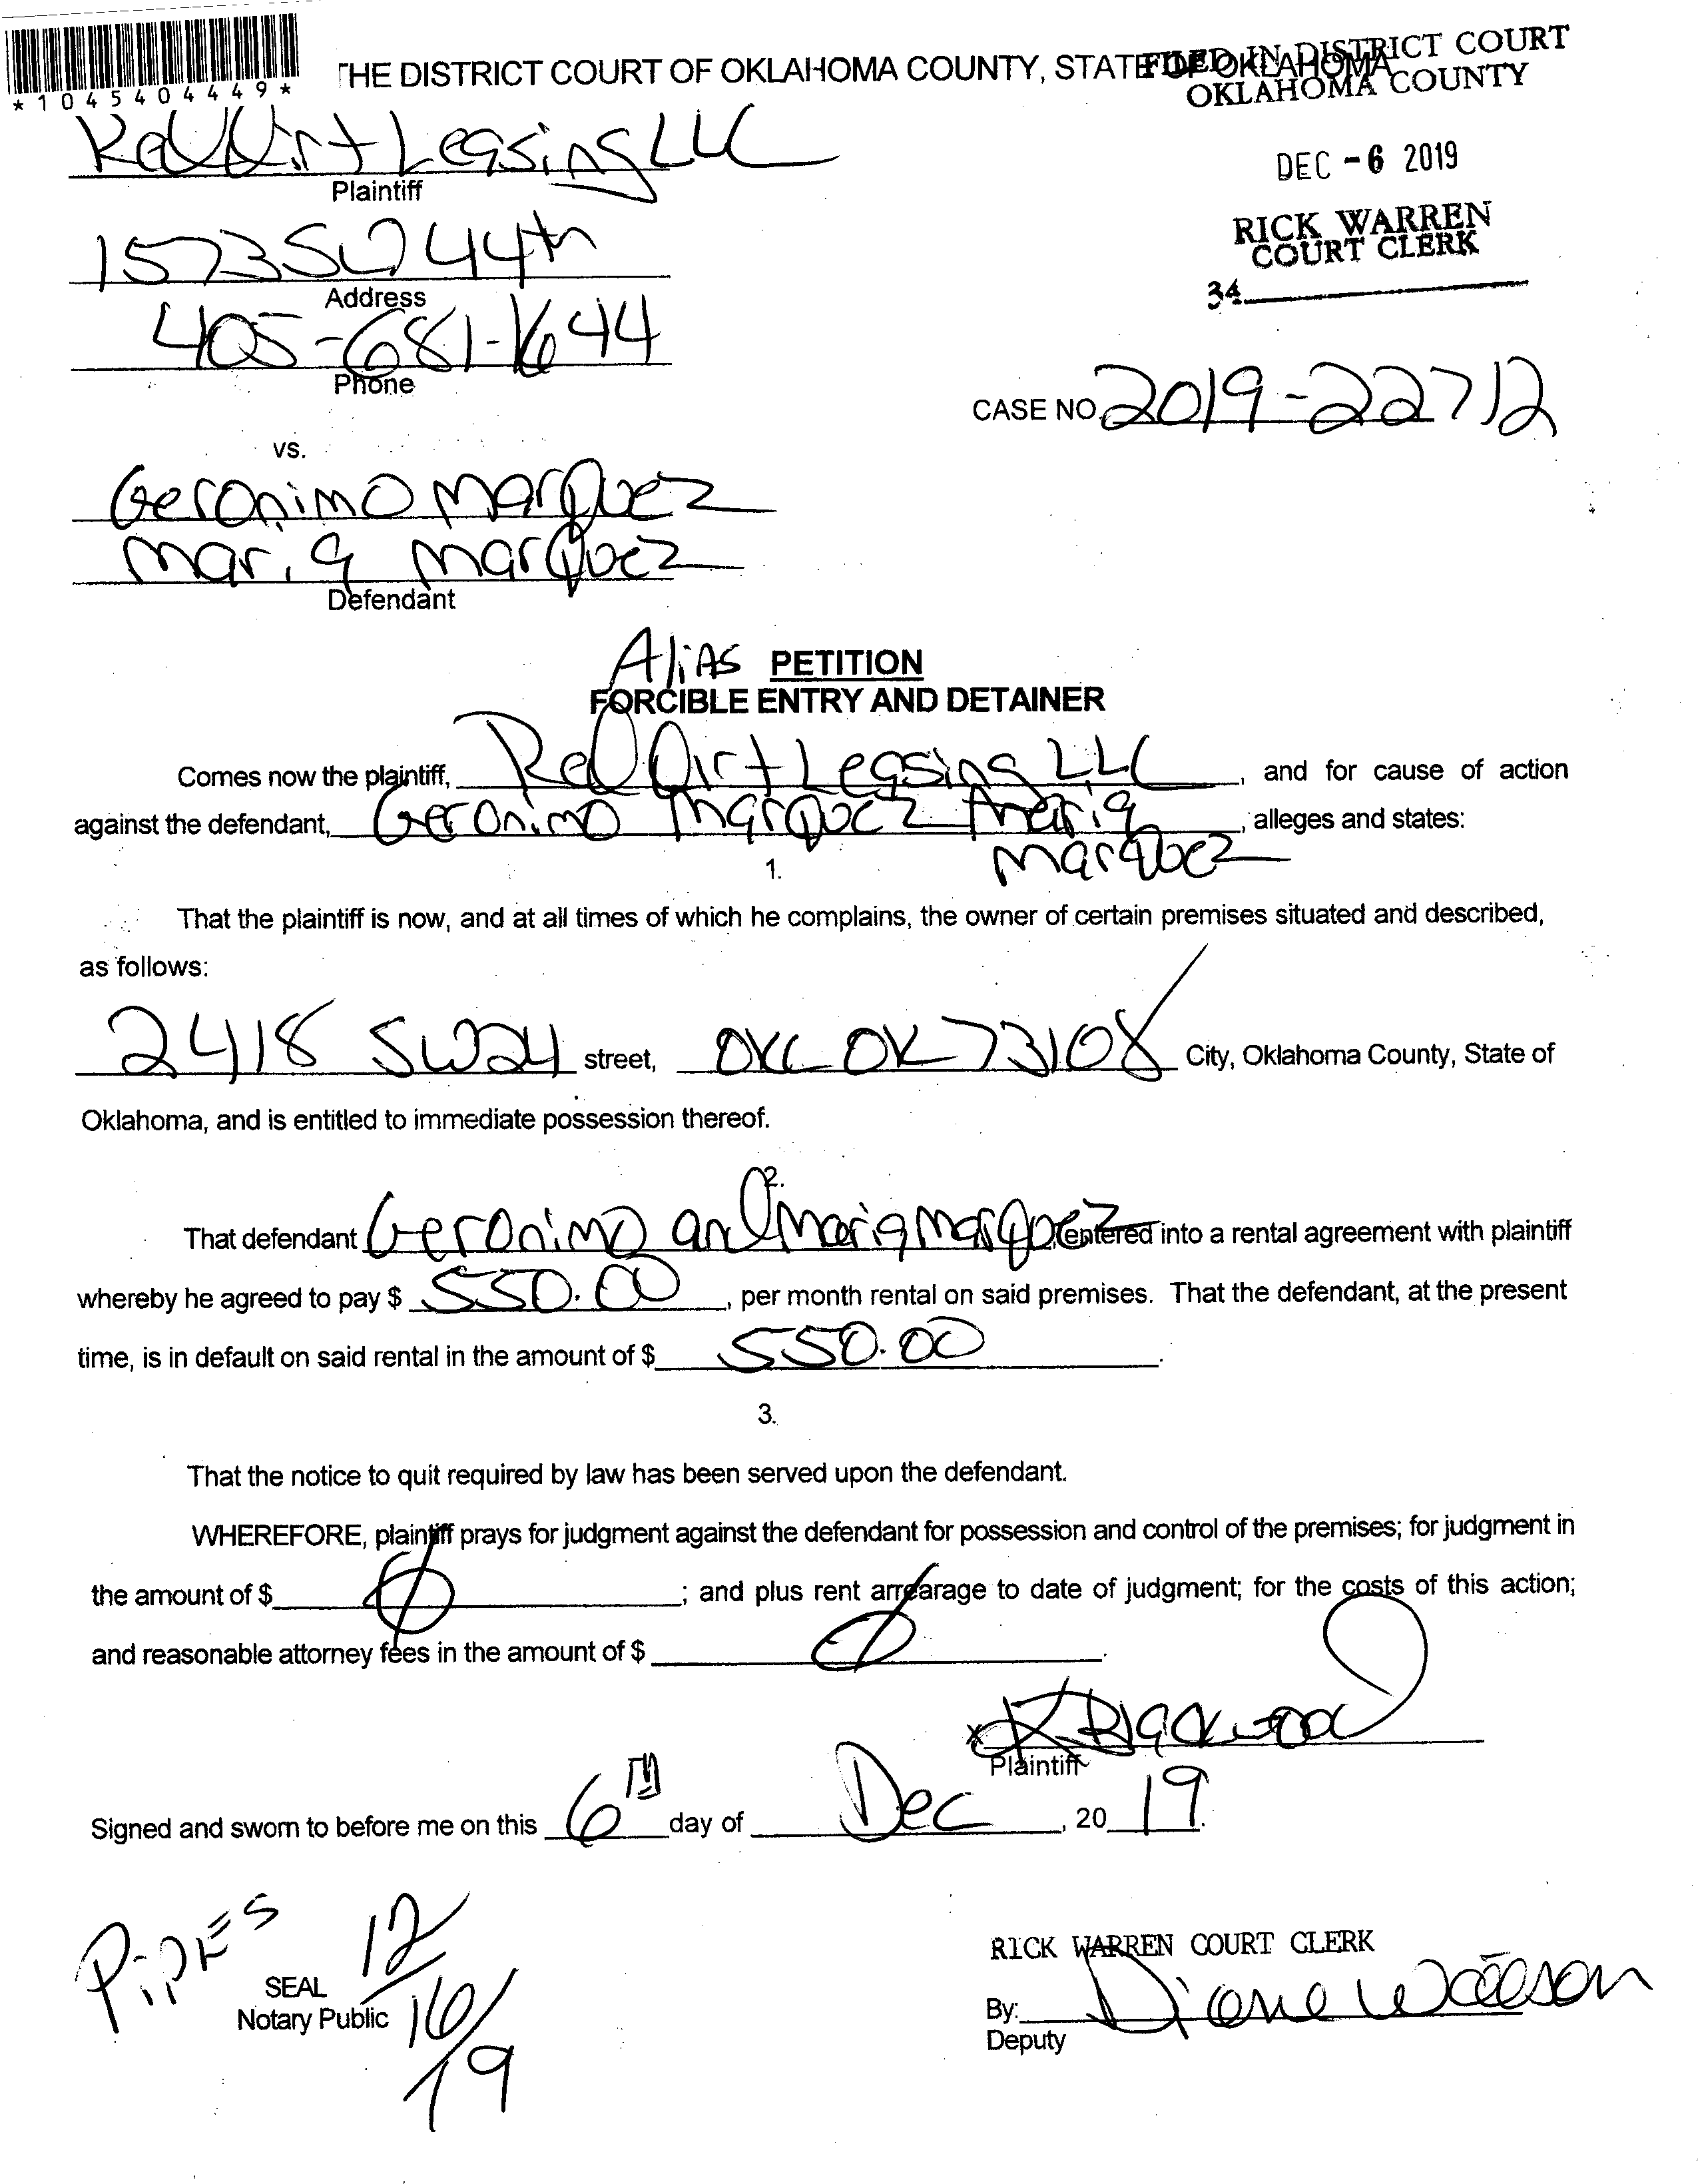 *1045404449*
THE DISTRICT COURT OF OKLAHOMA COUNTY, STATE OF OKLAHOMA
FILED IN DISTRICT COURT
OKLAHOMA COUNTY
DEC -6 2019
RICK WARREN
COURT CLERK
34
Red Dirt Leasing LLC
Plaintiff
1573 SW 44th
Address
405-681-1644
Phone
CASE NO. 2019-22712
vs.
Geronimo Marquez
Maria Marquez
Defendant
Alias PETITION
FORCIBLE ENTRY AND DETAINER
Comes now the plaintiff, Red Dirt Leasing LLC, and for cause of action
against the defendant, Geronimo Marquez Maria Marquez, alleges and states:
1.
That the plaintiff is now, and at all times of which he complains, the owner of certain premises situated and described,
as follows:
2418 SW 24 street, OKC OK 73108 City, Oklahoma County, State of
Oklahoma, and is entitled to immediate possession thereof.
2.
That defendant Geronimo and Maria Marquez, entered into a rental agreement with plaintiff
whereby he agreed to pay $ 550.00, per month rental on said premises. That the defendant, at the present
time, is in default on said rental in the amount of $ 550.00.
3.
That the notice to quit required by law has been served upon the defendant.
WHEREFORE, plaintiff prays for judgment against the defendant for possession and control of the premises; for judgment in
the amount of $ 0; and plus rent arrearage to date of judgment; for the costs of this action;
and reasonable attorney fees in the amount of $ 0.
x K Blackwood
Plaintiff
Signed and sworn to before me on this 6TH day of Dec, 20 19.
PIPES
12/16/19
SEAL
Notary Public
RICK WARREN COURT CLERK
By: Diane Watson
Deputy